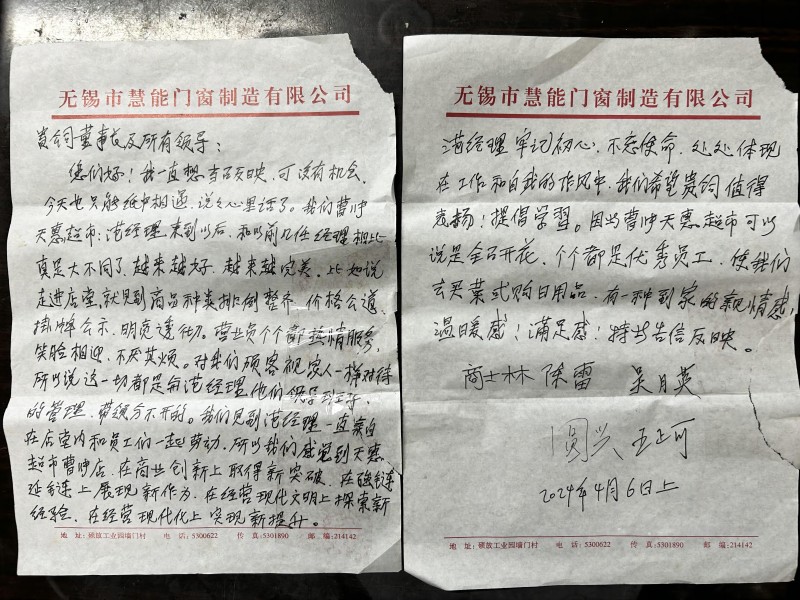 无锡市慧能门窗制造有限公司
贵司董事长及所有领导：
您们好！我一直想写信反映，可没有机会，
今天也只能纸中相遇，说说心里话了。我们曹冲
天惠超市：范经理来到以后，和以前几任经理相比
真是大不同了，越来越好，越来越完美，比如说
走进店堂，就见到商品种类排例整齐，价格公道，
挂牌公示，明亮透彻。营业员个个都热情服务，
笑脸相迎，不厌其烦。对我们顾客视家人一样对待
所以说这一切都是有范经理他们领导班子，
的管理、带领分不开的。我们见到范经理一直亲自
在店堂内和员工们一起劳动，所以我们感觉到天惠
超市曹冲店，在商业创新上取得新突破，在强链
延链上展现新作为，在经营现代文明上探索新
经验，在经营现代化上实现新提升。
地 址：硕放工业园墙门村 电 话：5300622 传 真：5301890 邮 编：214142
无锡市慧能门窗制造有限公司
范经理牢记初心，不忘使命，处处体现
在工作和自我的作风中，我们希望贵司值得
表扬！提倡学习。因为曹冲天惠超市可以
说是全百开花，个个都是优秀员工，使我们
去买菜或购日用品，有一种到家的亲情感！
温暖感！满足感！特书告信反映。
商士林 陈雷 吴月英
王正可
2024年4月6日上
地 址：硕放工业园墙门村 电 话：5300622 传 真：5301890 邮 编：214142